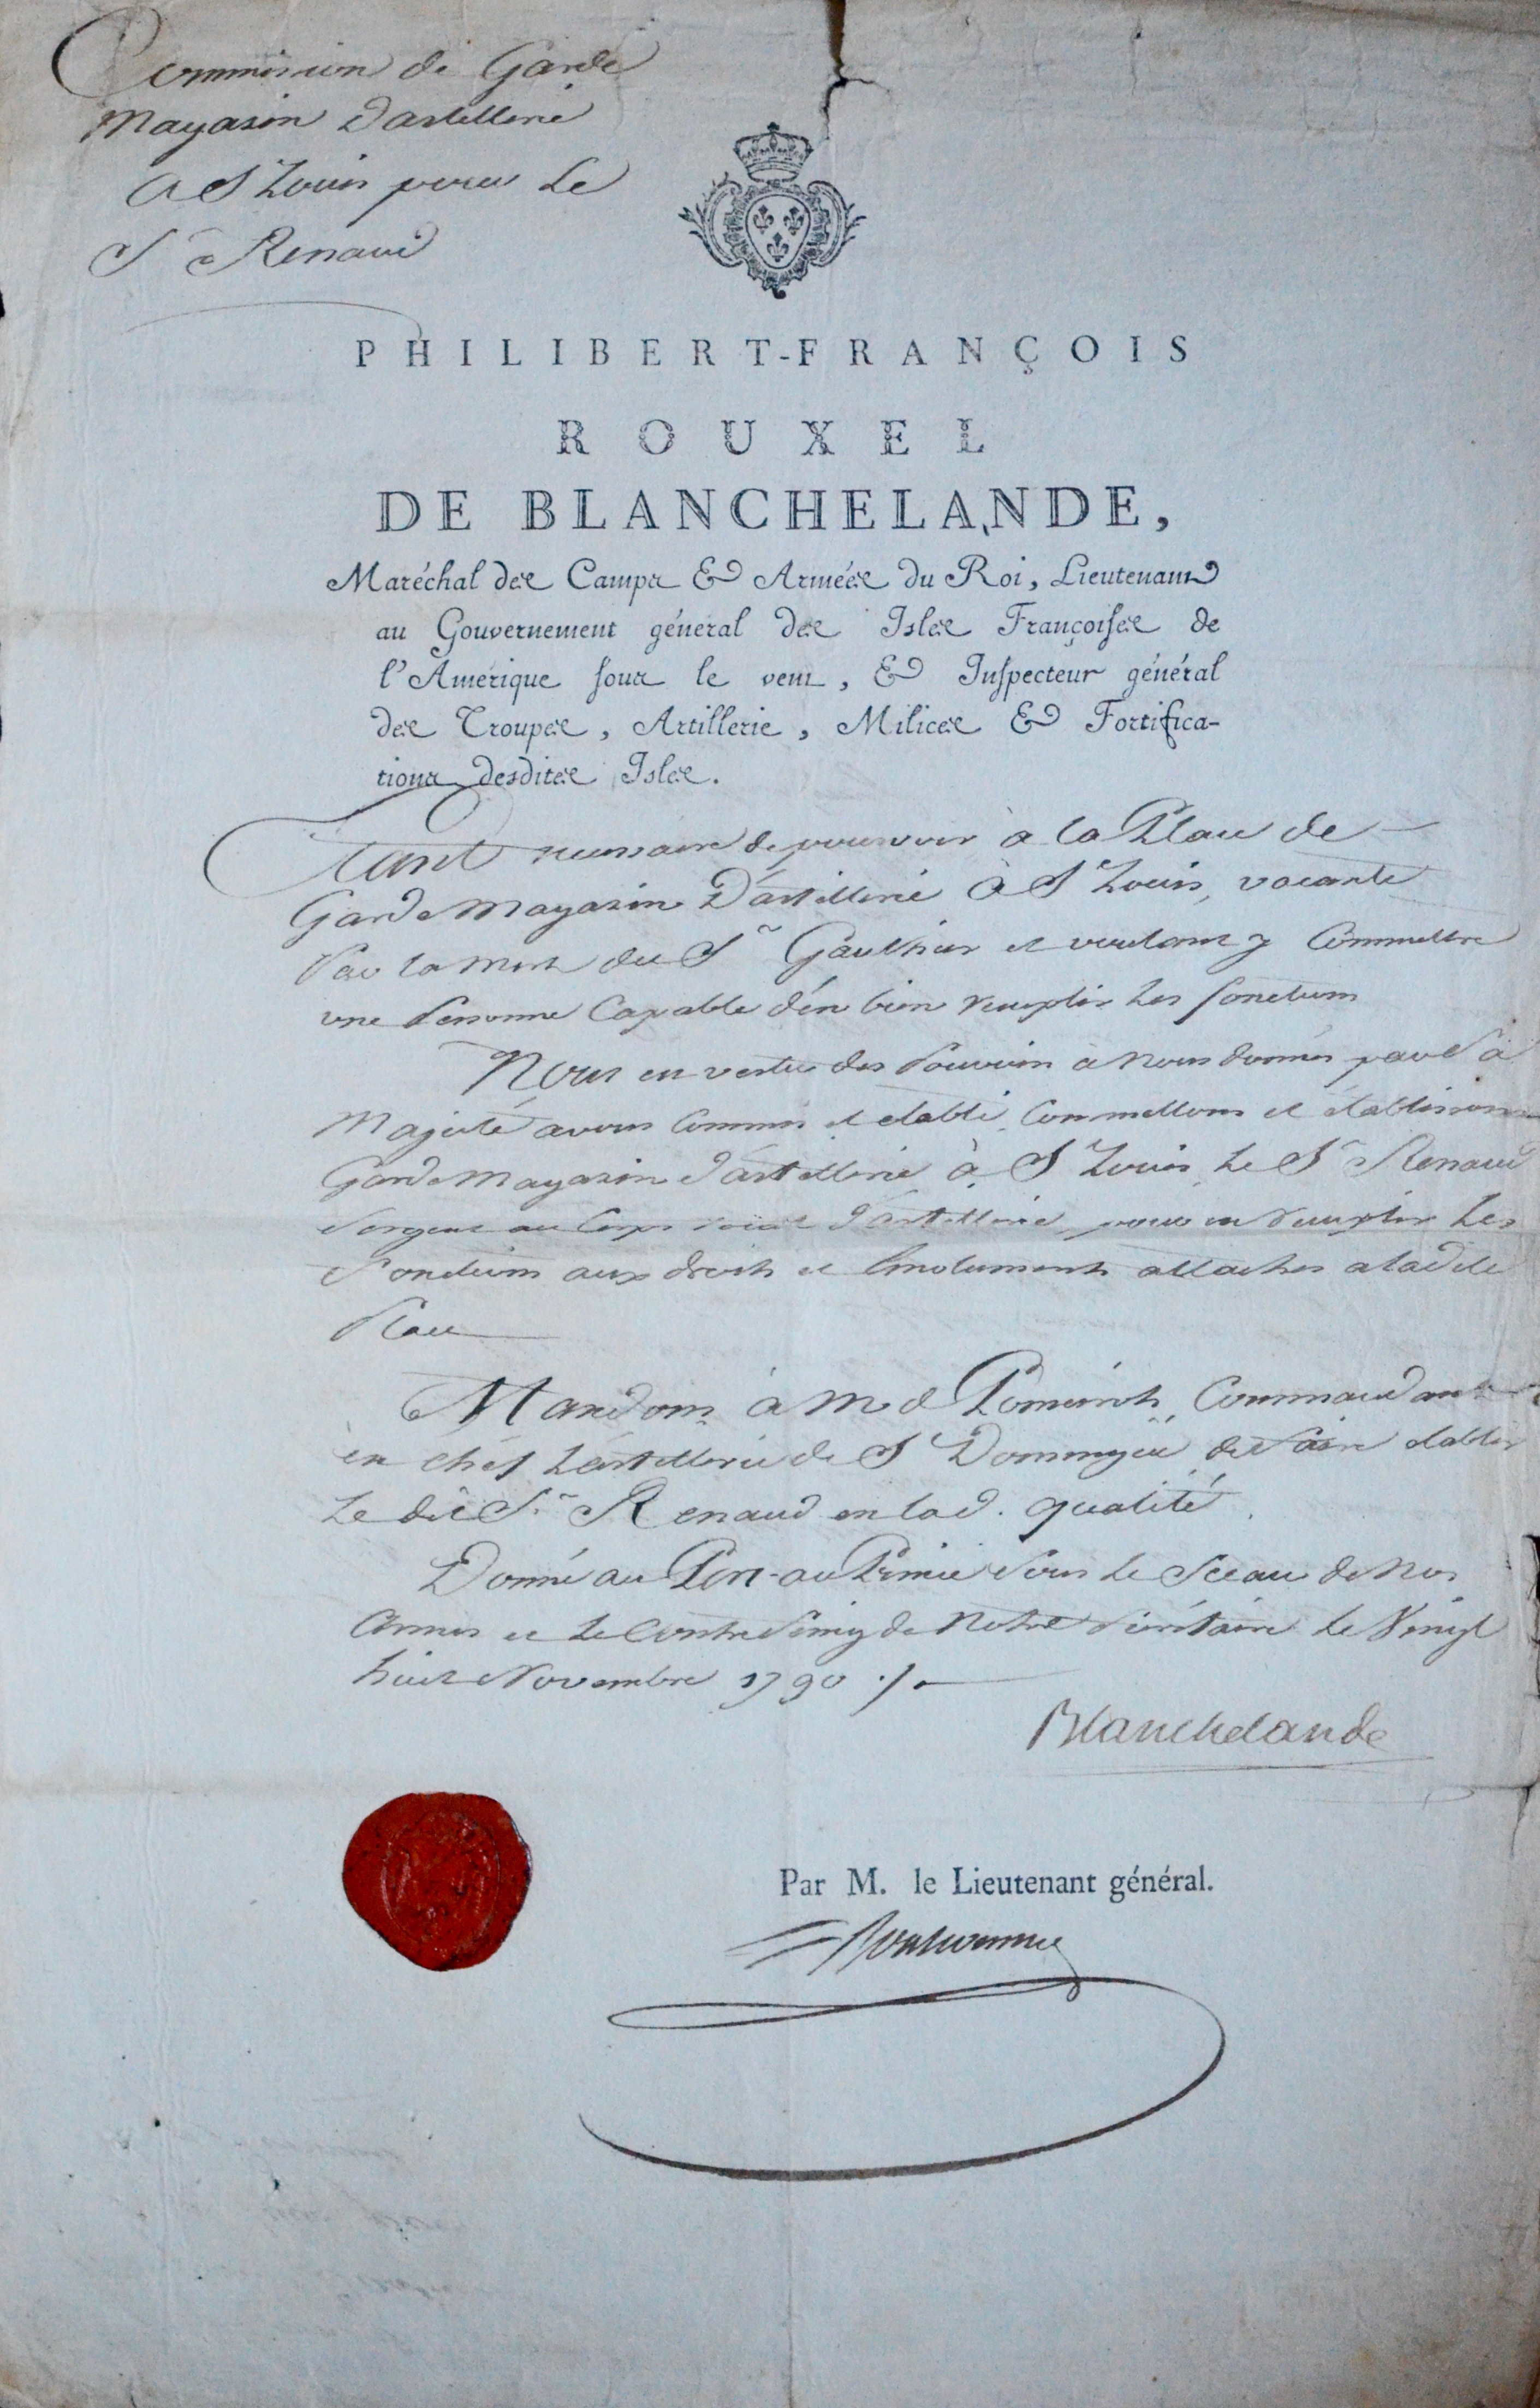 Commission de Garde
Magasin Dartillerie
A St Louis pour Le
Sr Renaud
PHILIBERT-FRANÇOIS
ROUXEL
DE BLANCHELANDE,
Maréchal des Camps & Armées du Roi, Lieutenant
au Gouvernement général des Isles Françoises de
l'Amérique sous le vent, & Inspecteur général
des Troupes, Artillerie, Milices & Fortifica-
tions desdites Isles.
Etant necessaire de pourvoir à la Place de
Garde Magasin D'artillerie à St Louis, vacante
Par la Mort du Sr Gaulthier et voulant y Commettre
une Personne Capable d'en bien remplir Les fonctions
Nous en vertu des Pouvoirs à Nous donnés par Sa
Majesté avons Commis et etabli, Commettons et établissons
Garde Magasin d'artillerie à St Louis, Le Sr Renaud
Sergent au Corps roial d'artillerie pour en remplir Les
Fonctions aux droits et Emoluments attachés a ladite
Place
Mandons à M de Commandant
en chef L'artillerie de St Domingue de Faire etablir
Le dit Sr Renaud en lad. qualité.
Donné au Port-au-Prince sous Le Sceau de Nos
Armes et Le Contre Seing de Notre Sécrétaire Le Vingt
huit Novembre 1790 ./.
Blanchelande
Par M. le Lieutenant général.